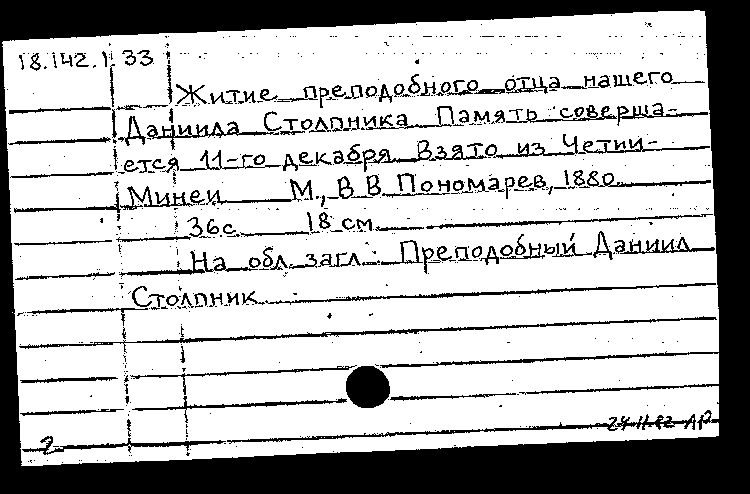 18.142.1.33
Житие преподобного отца нашего
Даниила Столпника Память соверша-
ется 11-го декабря Взято из Четии-
Минеи М., В В Пономарев, 1880
36с 18 см
На обл. загл.: Преподобный Даниил
Столпник
2 24.11.82 ЛР